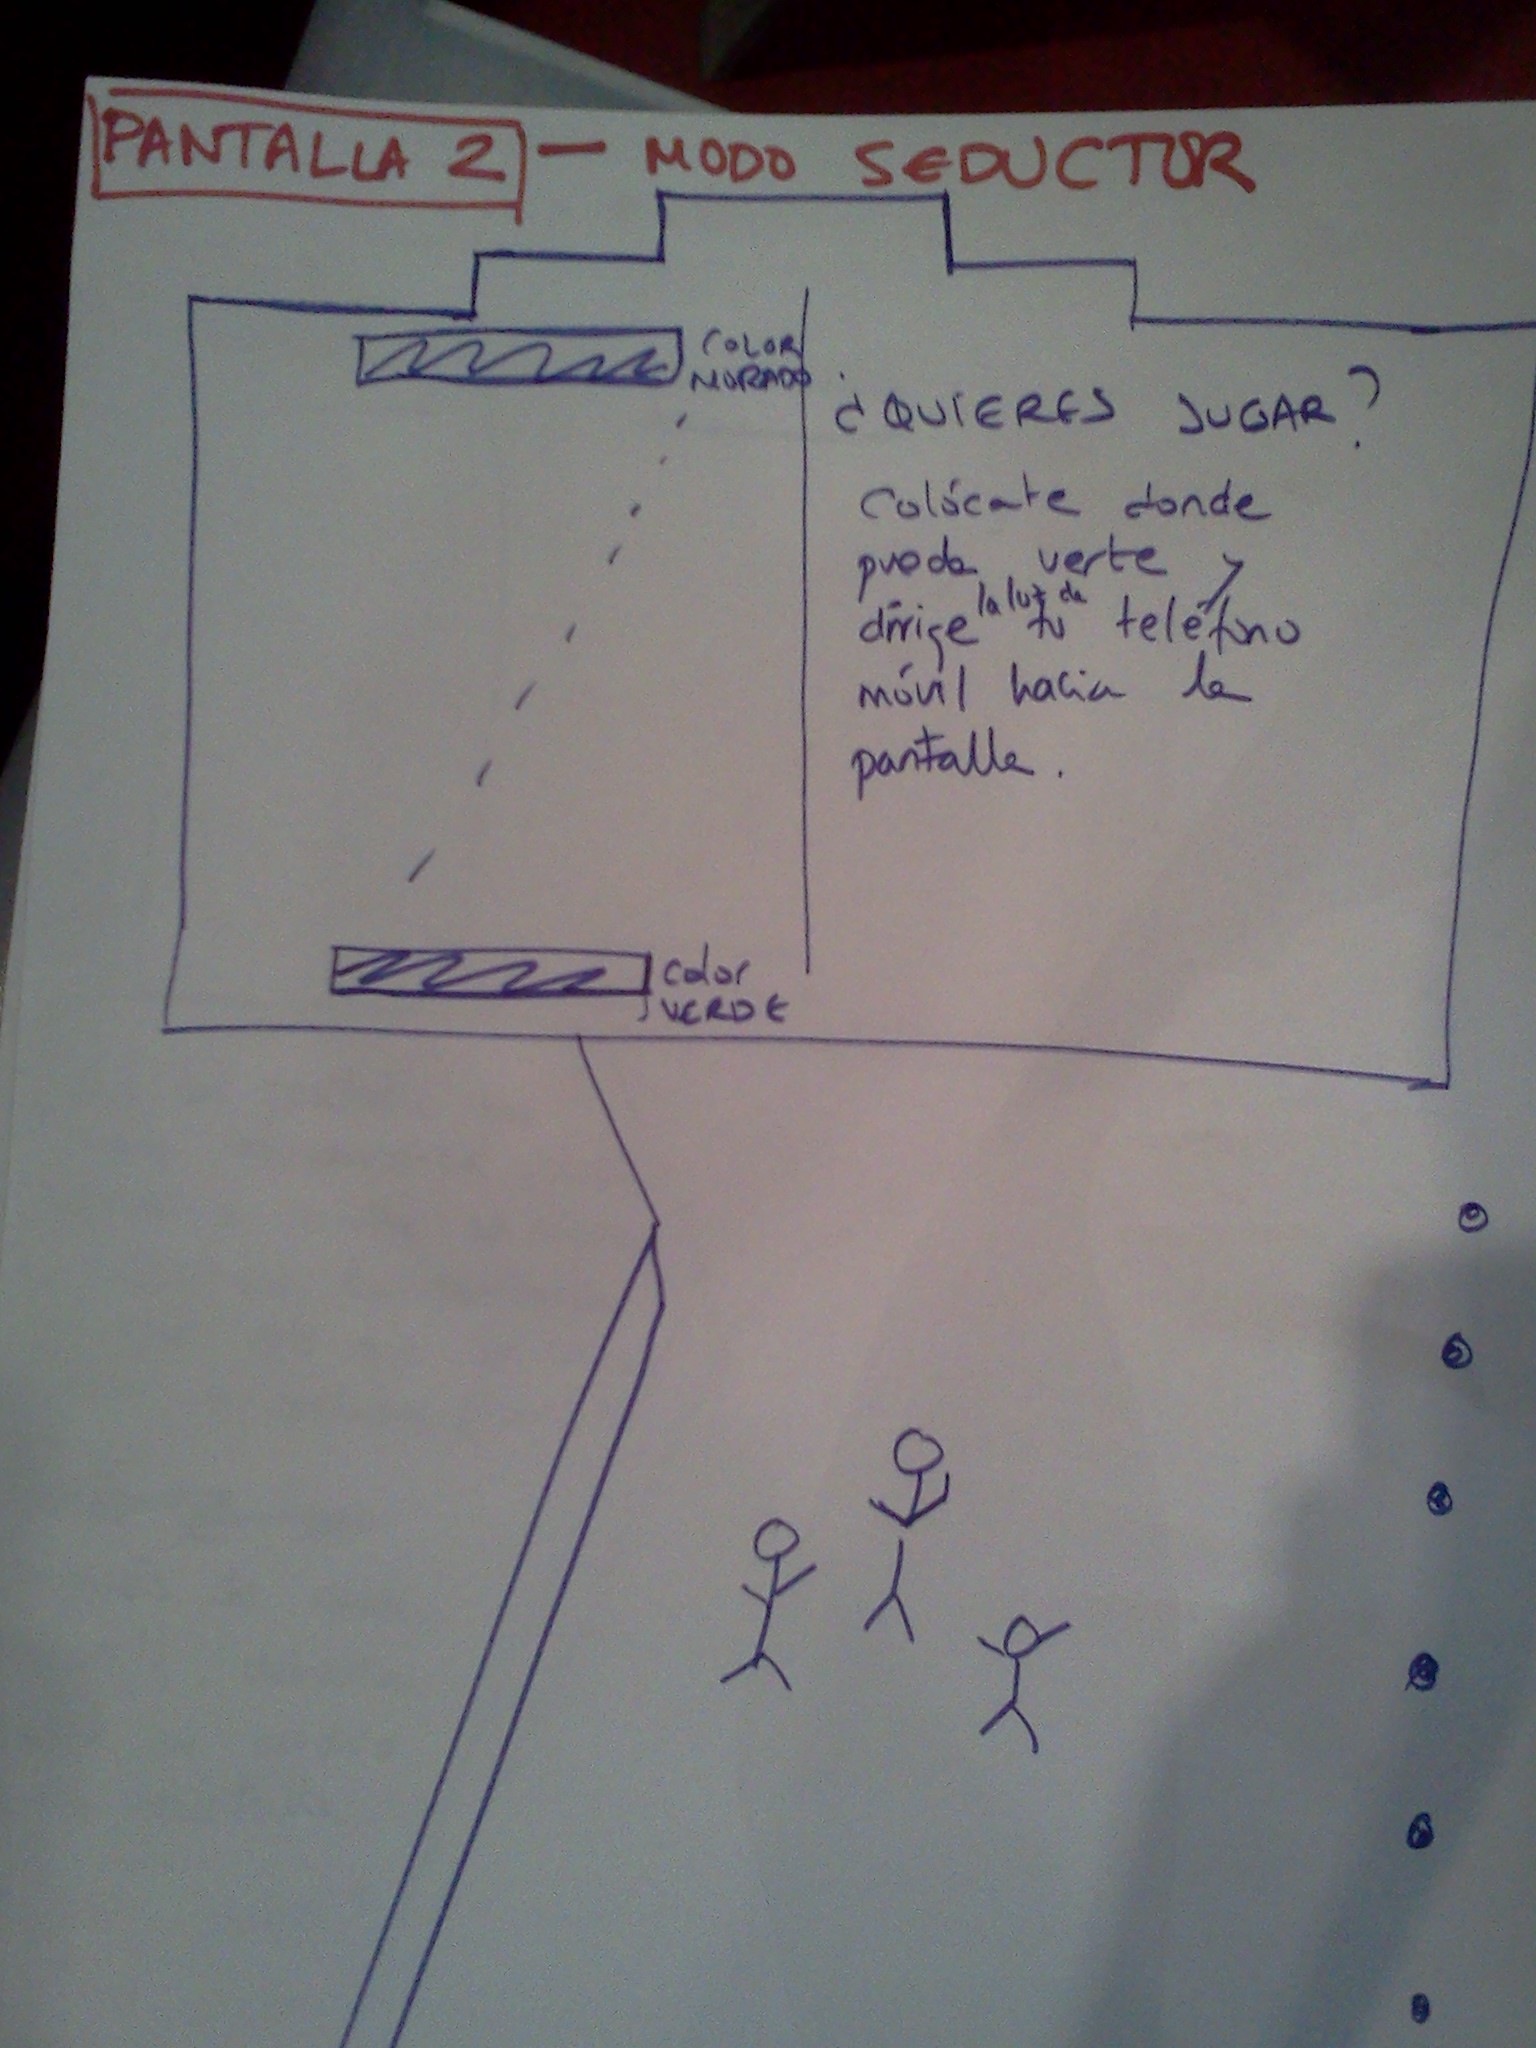 PANTALLA 2 — MODO SEDUCTOR
COLOR
MORADO
¿QUIERES JUGAR?
Colócate donde
pueda verte y
dirige la luz de tu teléfono
móvil hacia la
pantalla.
Color
VERDE